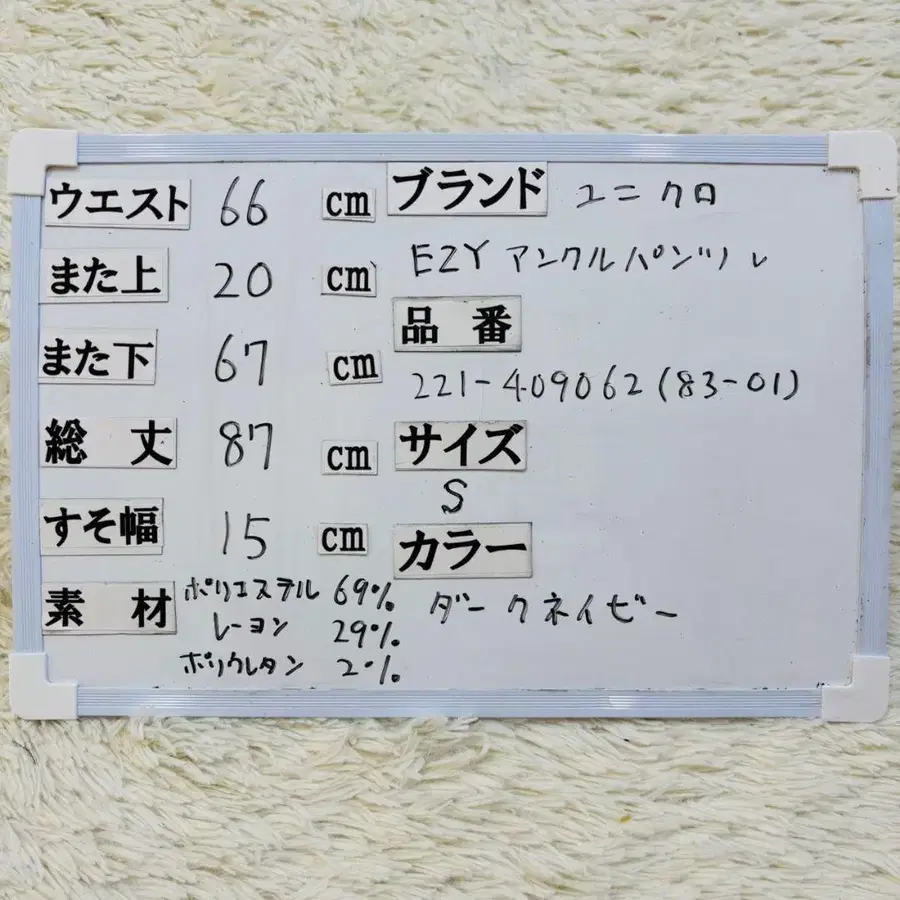 ウエスト 66 cm
また上 20 cm
また下 67 cm
総丈 87 cm
すそ幅 15 cm
素材 ポリエステル 69%
レーヨン 29%
ポリウレタン 2%
ブランド ユニクロ
EZY アンクルパンツ
品番
221-409062(83-01)
サイズ
S
カラー
ダークネイビー